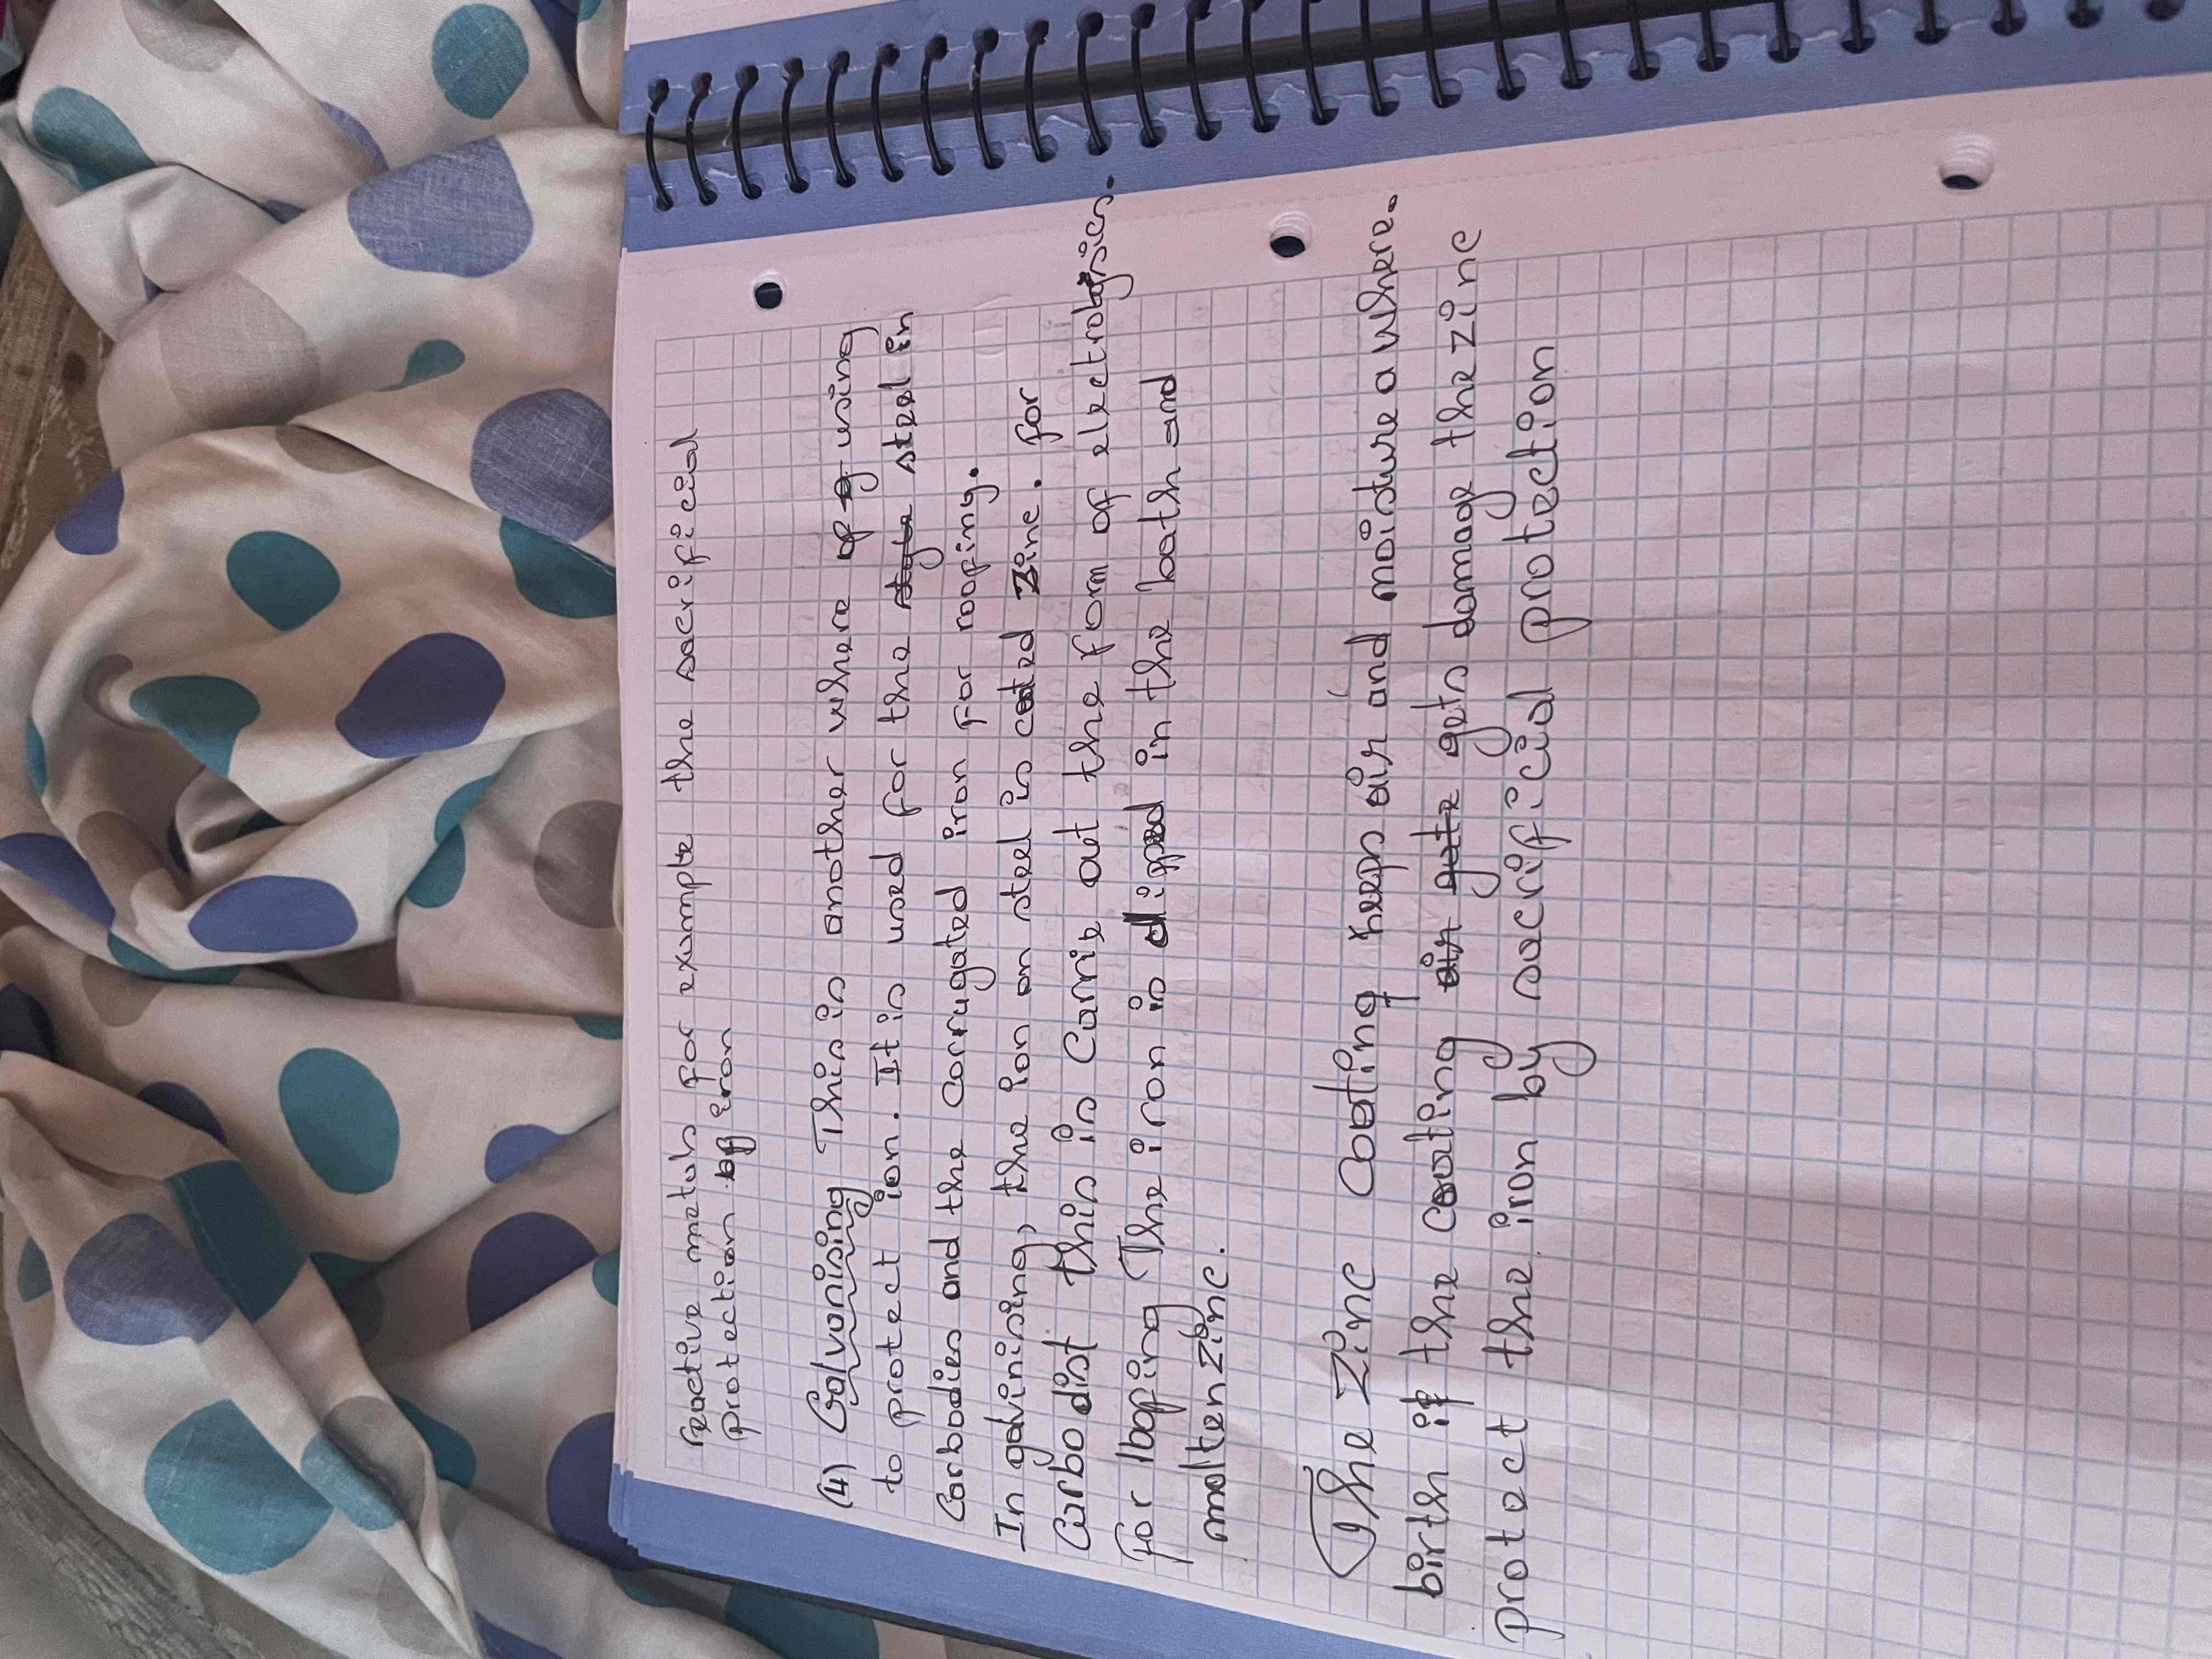 reactive metals for example the sacrificial
protection of iron
(4) Galvanising This is another where using
to protect ion. It is used for the steel in
Carbodies and the Corrugated iron for roofing.
In galvinising, the ion on steel is coted Zinc. for
Carbo dist this is Carrie out the form of
for roofing The iron is dipped in the bath and
moltenzinc.
The Zinc Coating keeps air and moisture a where.
birth if the coating gets damage the zinc
protect the iron by sacrificial protection